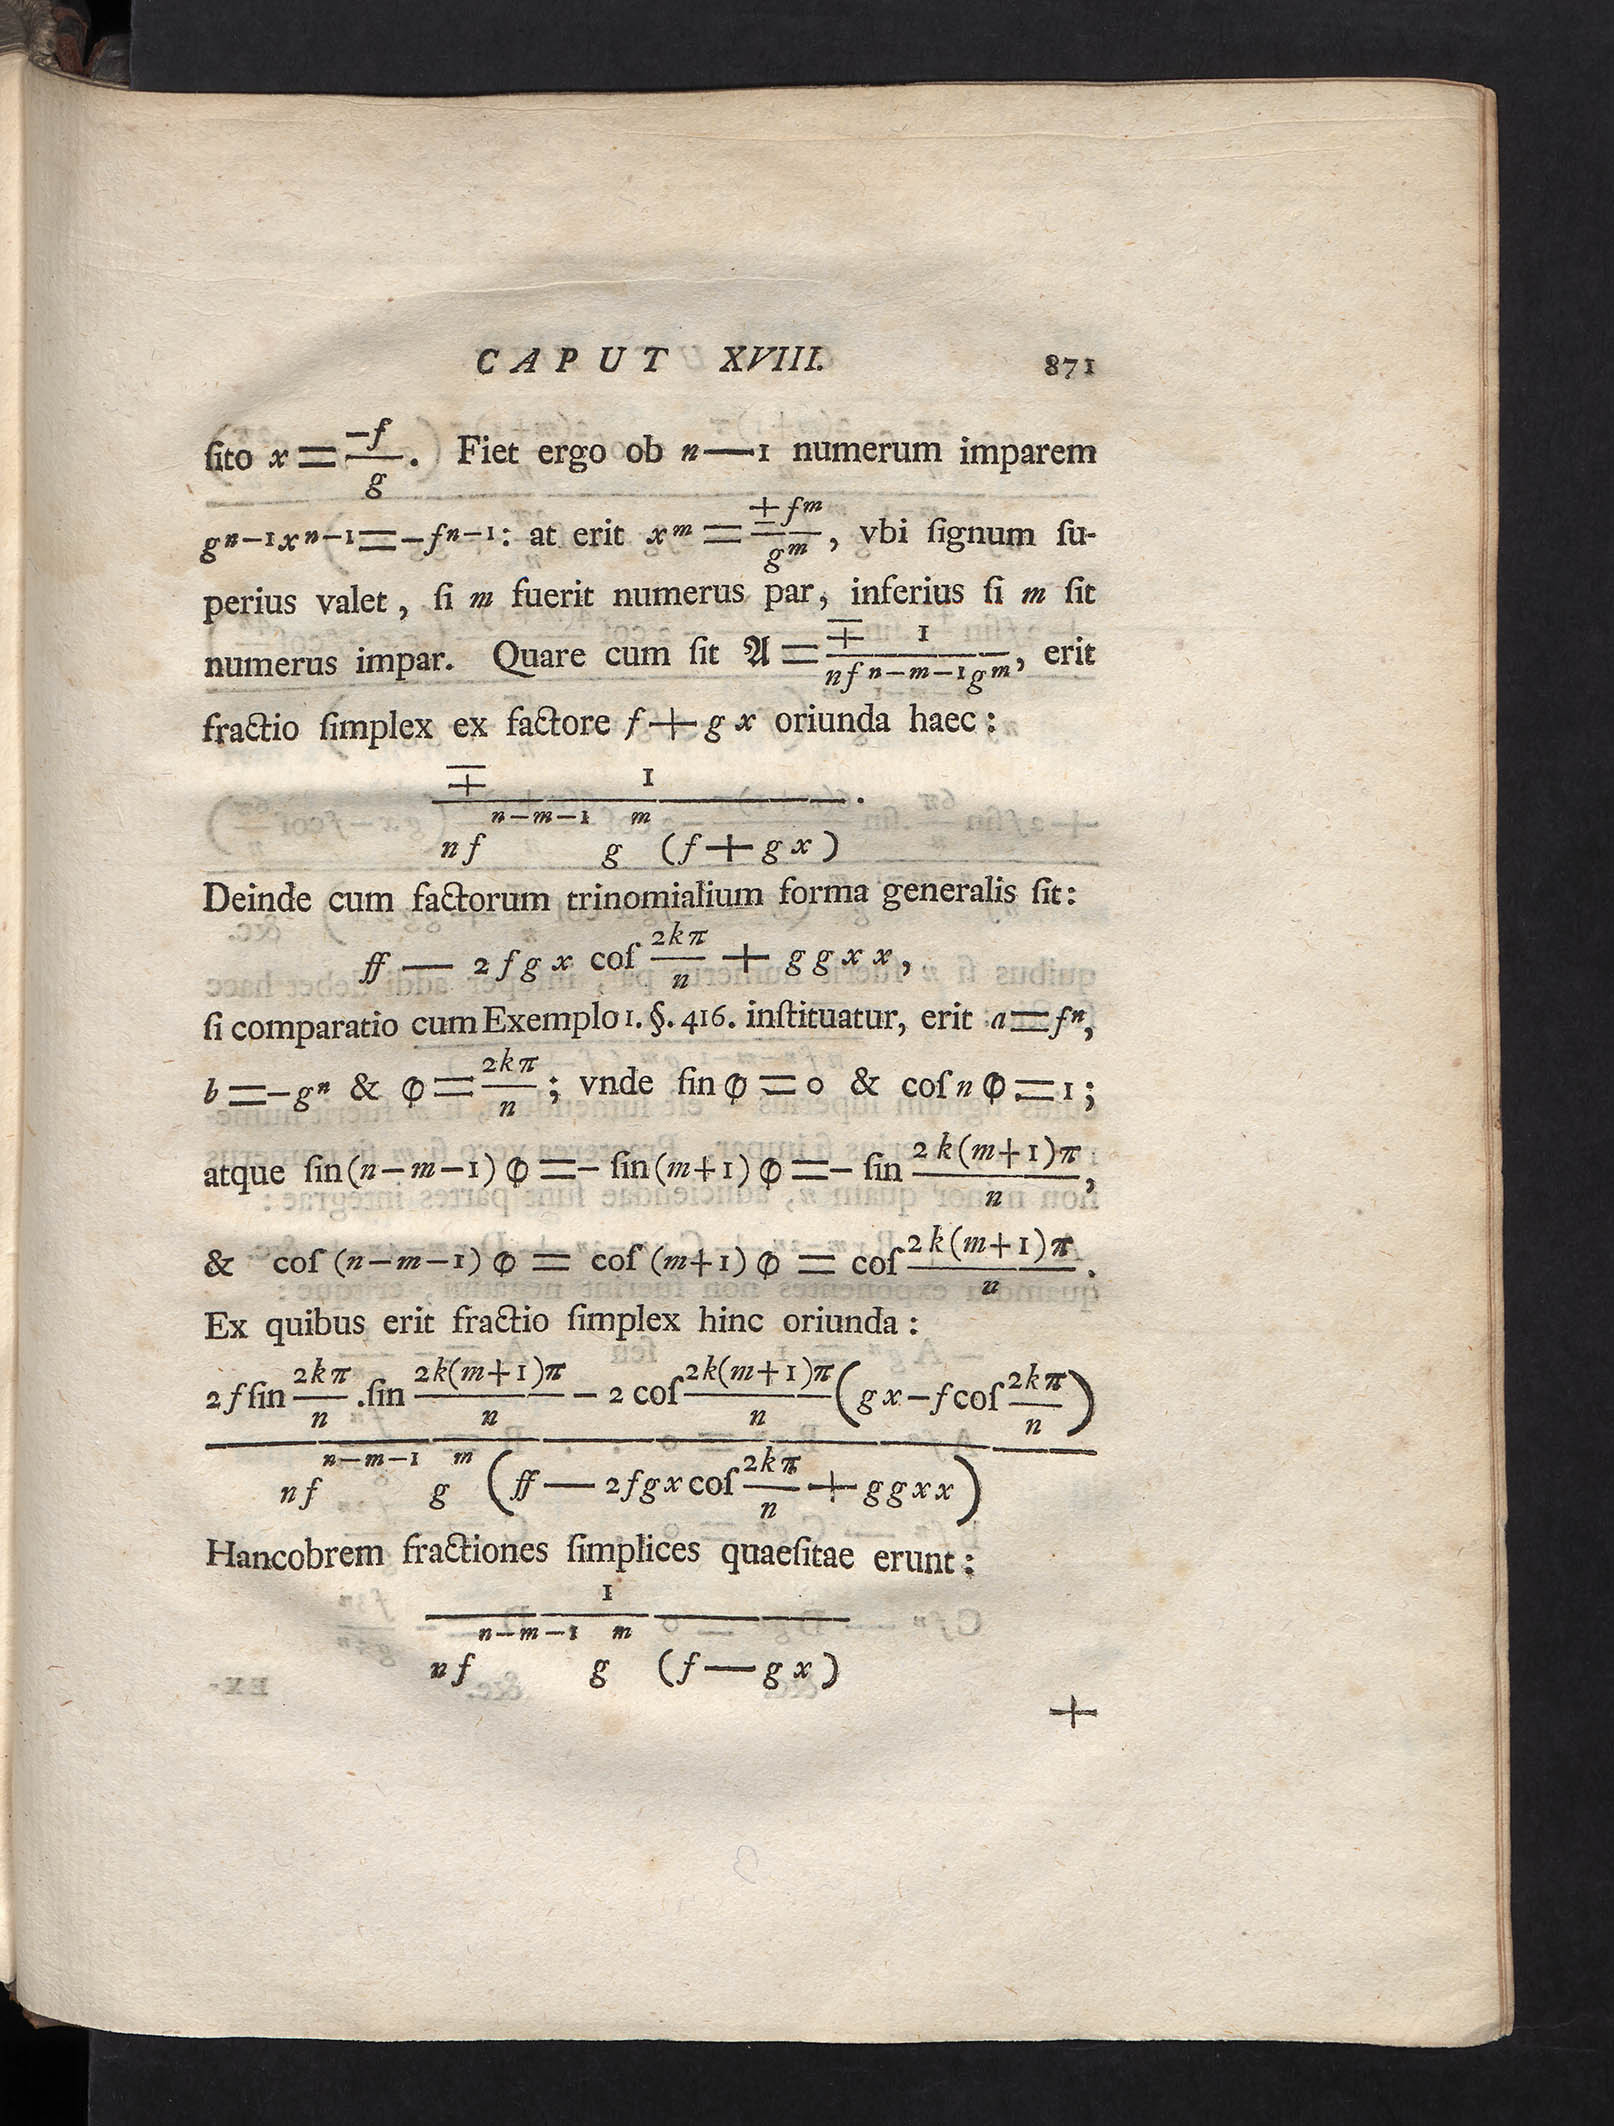 CAPUT XVIII. 871
ſito x = \frac{-f}{g}. Fiet ergo ob n—1 numerum imparem
g^{n-1}x^{n-1} = -f^{n-1}: at erit x^m = \frac{\pm f^m}{g^m}, vbi ſignum ſu-
perius valet, ſi m fuerit numerus par, inferius ſi m ſit
numerus impar. Quare cum ſit 𝔄 = \frac{\mp 1}{nf^{n-m-1}g^m}, erit
fractio ſimplex ex factore f + gx oriunda haec:
\frac{\mp 1}{nf^{n-m-1}g^m(f+gx)}.
Deinde cum factorum trinomialium forma generalis ſit:
ff — 2fgx coſ \frac{2kπ}{n} + ggxx,
ſi comparatio cum Exemplo 1. §. 416. inſtituatur, erit a = f^n,
b = -g^n & φ = \frac{2kπ}{n}; vnde ſin φ = 0 & coſ n φ = 1;
atque ſin (n-m-1) φ = - ſin (m+1) φ = - ſin \frac{2k(m+1)π}{n},
& coſ (n-m-1) φ = coſ (m+1) φ = coſ \frac{2k(m+1)π}{n}.
Ex quibus erit fractio ſimplex hinc oriunda:
\frac{2f ſin \frac{2kπ}{n} . ſin \frac{2k(m+1)π}{n} - 2 coſ \frac{2k(m+1)π}{n} (gx - f coſ \frac{2kπ}{n})}{nf^{n-m-1}g^m (ff — 2fgx coſ \frac{2kπ}{n} + ggxx)}
Hancobrem fractiones ſimplices quaeſitae erunt:
\frac{1}{nf^{n-m-1}g^m(f—gx)}
+